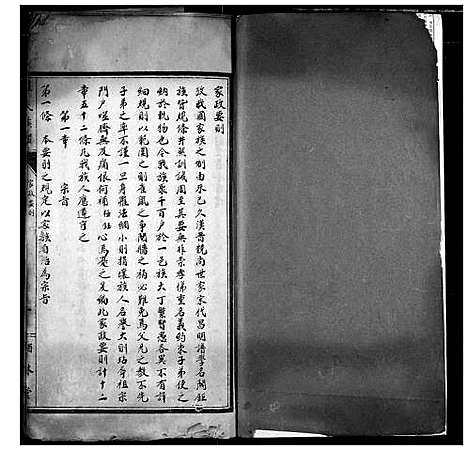 家政要則
攷我國家族之別由來已久漢晉魏尚世家宋代昌明譜學名閥鉅
族皆規條井然訓誡周至其要無非崇孝悌重名義約束子弟使之
納於軌物也今我族象千百戶於一邑族大丁繁智愚各異不有詳
細規則以範圍之則雀鼠之爭鬩牆之禍必難免焉父兄之教不先
子弟之率不謹一旦身罹法網小則損壞族人名譽大則玷辱祖宗
門戶噬臍無及痛恨何補 心焉憂之爰編此家政要則計十二
章五十二條凡我族人應遵守之
第一章 宗旨
第一條 本要則之規定以家族自治為宗旨
家政要則